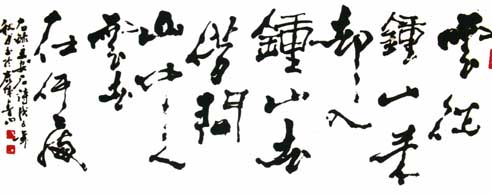 雲從
鍾山来
却入
鍾山去
借問
山中人
雲
在何處
王安石詩